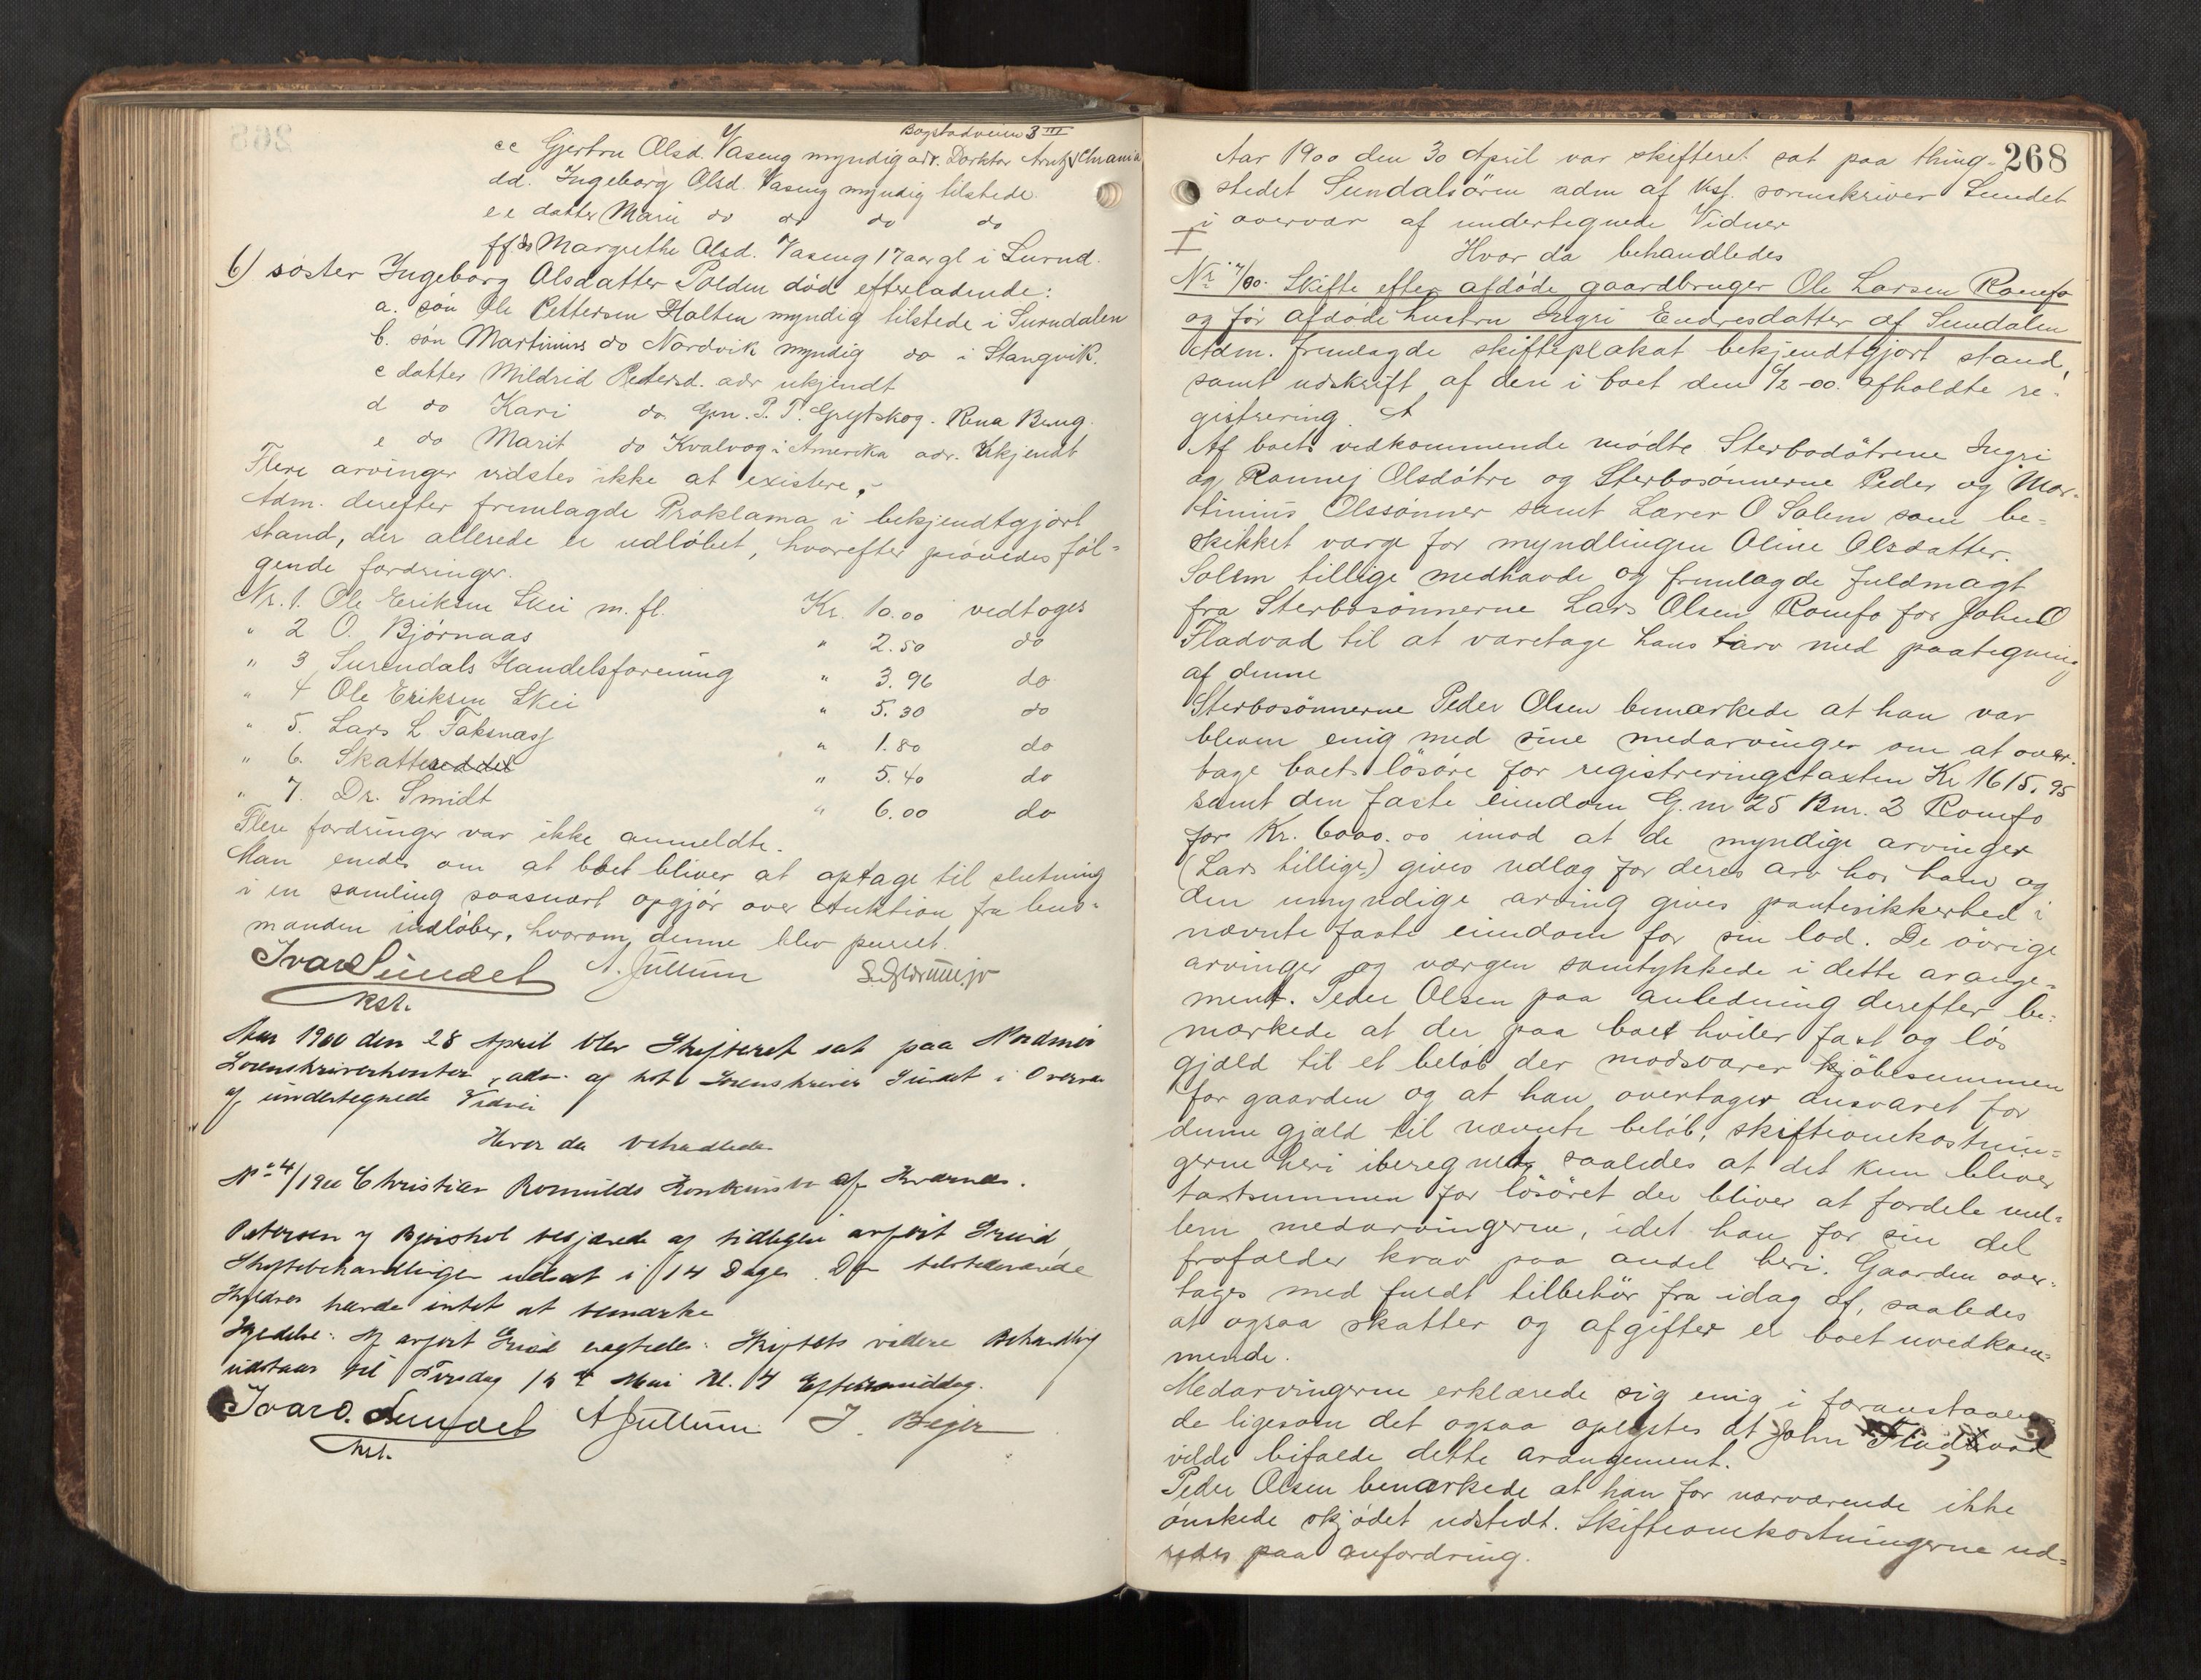 Bogstadveien 3 III
cc Gjertru Olsd. Vaseng myndig adr. Doktor Arntz Chrania
dd. Ingeborg Olsd. Vaseng myndig tilstede
ee datter Marie do do do do
ff. do Margrethe Olsd. Vaseng 17 aar gl i Surnd.
6) søster Ingeborg Olsdatter Polden død efterladende:
a. søn Ole Pettersen Halten myndig tilstede i Surndalen
b. søn Martinius do Nordvik myndig do i Stangvik.
c datter Mildrid Petersd. adr ukjendt
d do Kari do. Gm. P. T. Grytskog. Rena
e do Marit do Kvalvog i Amerika adr. Ukjendt
Flere arvinger vidstes ikke at existere.-
Adm. derefter fremlagde Proklama i bekjendtgjort
stand, der allerede er udløbet, hvorefter prøvedes føl=
gende fordringer.
Nr. 1. Ole Eriksen Skei m. fl. Kr. 10.00 vedtoges
" 2 O. Bjørnaas " 2.50 do
" 3 Surendals Handelsforening " 3.96 do
" 4 Ole Eriksen Skei " 5.30 do
" 5. Lars L Faksnæs " 1.80 do
" 6. Skatte " 5.40 do
" 7. Dr. Smidt " 6.00 do
Flere fordringer var ikke anmeldte.
Man enedes om at boet bliver at optage til slutning
i en samling saasnart opgjør over Auktion fra lens=
manden indløber, hvorom denne blev purret.
Ivar Sundet A. Jullum
kst.
Aar 1900 den 28 April blev Skifteret sat paa Nordmør
Sorenskriverkontor, adm. af kst. Sorenskriver Sundet i Overvær
af undertegnede Vidner
Hvor da behandledes
No 4/1900 Christian Romulds Konkursbo af Kvernes.
Petersen og Bjerkhol begjærede af tidligere anført Grund,
Skiftebehandlingen udsat i 14 Dage. De tilstedeværende
havde intet at bemærke
Kjendelse: Af anført Grund eragtedes: Skiftets videre Behandling
udstaar til Tirsdag 15de Mai Kl. 4 Eftermiddag.
Ivar O. Sundet A Jullum J. Bejer
kst.
268
Aar 1900 den 30 April var skifteret sat paa thing-
stedet Sundalsören adm af Kst. sorenskriver Sundet
i overvær af undertegnede Vidner
Hvor da behandledes
Nr. 7/00. Skifte efter afdøde gaardbruger Ole Larsen Romfo
og før afdøde hustru Ingri Endresdatter af Sundalen
Adm. fremlagde skifteplakat bekjendtgjort stand,
samt udskrift af den i boet den 6/2-00. afholdte re-
gistrering.
Af boets vedkommende mødte Sterbodøtrene Ingri
og Rønnej Olsdøtre og Sterbosønnerne Peder og Mar-
tinius Olssønner samt Lærer O Solem som be=
skikket værge for myndlingen Oline Olsdatter.
Solem tillige medhavde og fremlagde fuldmagt
fra Sterbosønnerne Lars Olsen Romfo for John O
Fladvad til at varetage hans tarv med paategning
af denne
Sterbosønnerne Peder Olsen bemærkede at han var
bleven enig med sine medarvinger om at over-
tage boets løsøre for registreringstaxten Kr 1615,95
samt den faste eiendom G.nr 25 Bnr. 2 Romfo
for Kr. 6000.00 imod at de myndige arvinger
(Lars tillige) gives udlæg for deres arv hos ham og
den umyndige arving gives pantesikkerhed i
nævnte faste eiendom for sin lod. De øvrige
arvinger og værgen samtykkede i dette arange=
ment. Peder Olsen paa anledning derefter be-
mærkede at der paa boet hviler fast og løs
gjæld til et beløb der modsvarer kjøbesummen
for gaarden og at han overtager ansvaret for
denne gjæld til nævnte beløb, skifteomkostnin=
gerne heri iberegnet, saaledes at det kun bliver
taxtsummen for løsøret der bliver at fordele mel=
lem medarvingerne, idet han for sin del
frafalder krav paa andel heri. Gaarden over-
tages med fuldt tilbehør fra idag af, saaledes
at ogsaa skatter og afgifter er boet uvedkom=
mende.
Medarvingerne erklærede sig enig i foranstaaen
de ligesom det ogsaa oplystes at John Fladvad
vilde bifalde dette arangement.
Peder Olsen bemærkede at han for nærværende ikke
ønskede skjødet udstedt. Skifteomkostningerne ud=
redes paa anfordring.